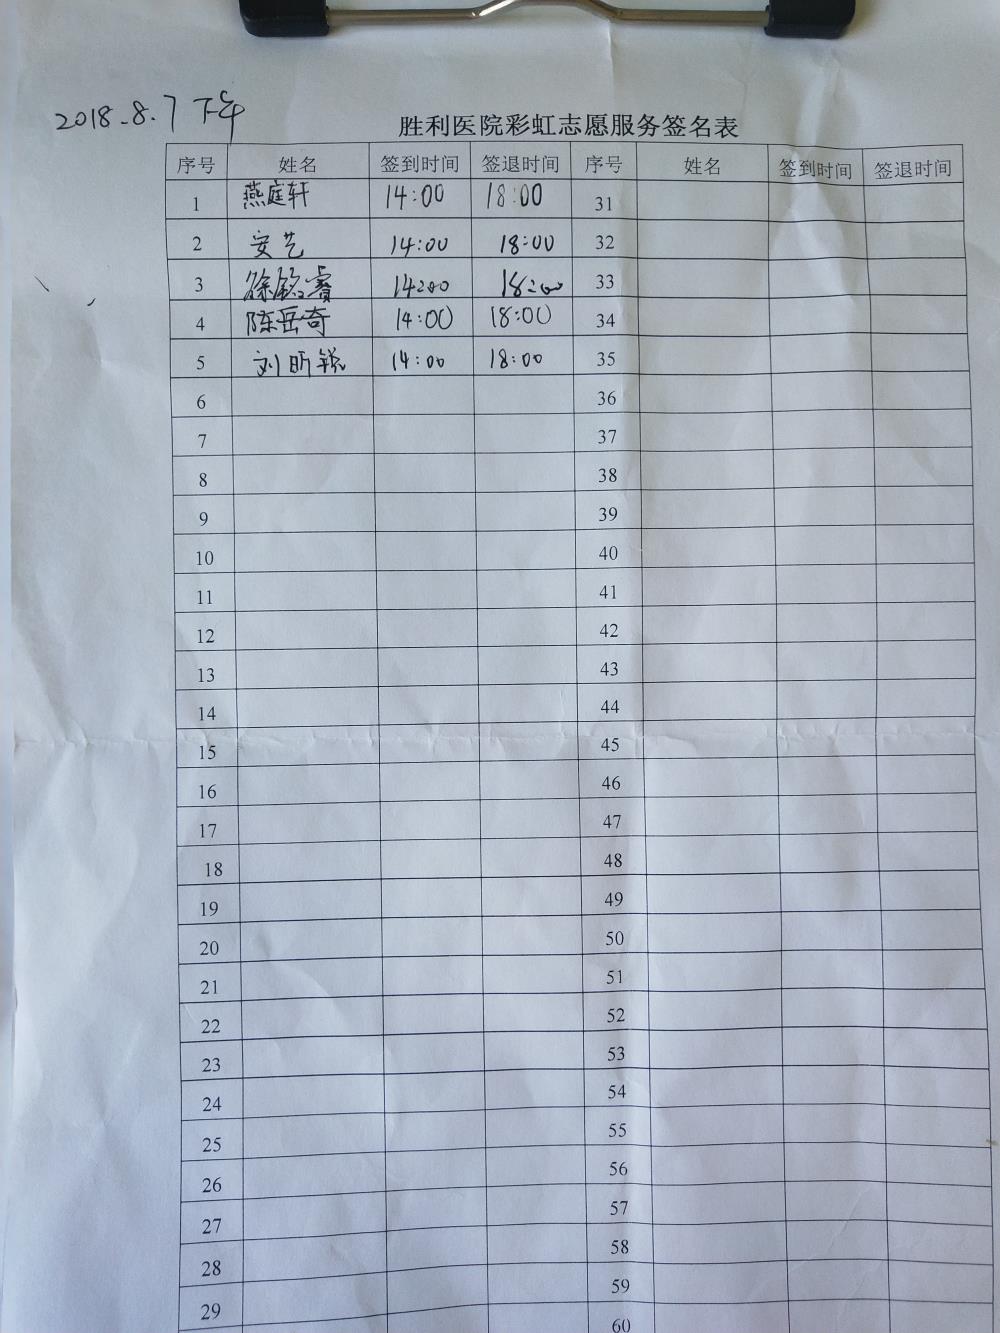 2018.8.7 下午
胜利医院彩虹志愿服务签名表
序号 姓名 签到时间 签退时间 序号 姓名 签到时间 签退时间
1 燕庭轩 14:00 18:00 31
2 安艺 14:00 18:00 32
3 徐铭睿 14:00 18:00 33
4 陈岳奇 14:00 18:00 34
5 刘昕锐 14:00 18:00 35
6 36
7 37
8 38
9 39
10 40
11 41
12 42
13 43
14 44
15 45
16 46
17 47
18 48
19 49
20 50
21 51
22 52
23 53
24 54
25 55
26 56
27 57
28 58
29 59
60